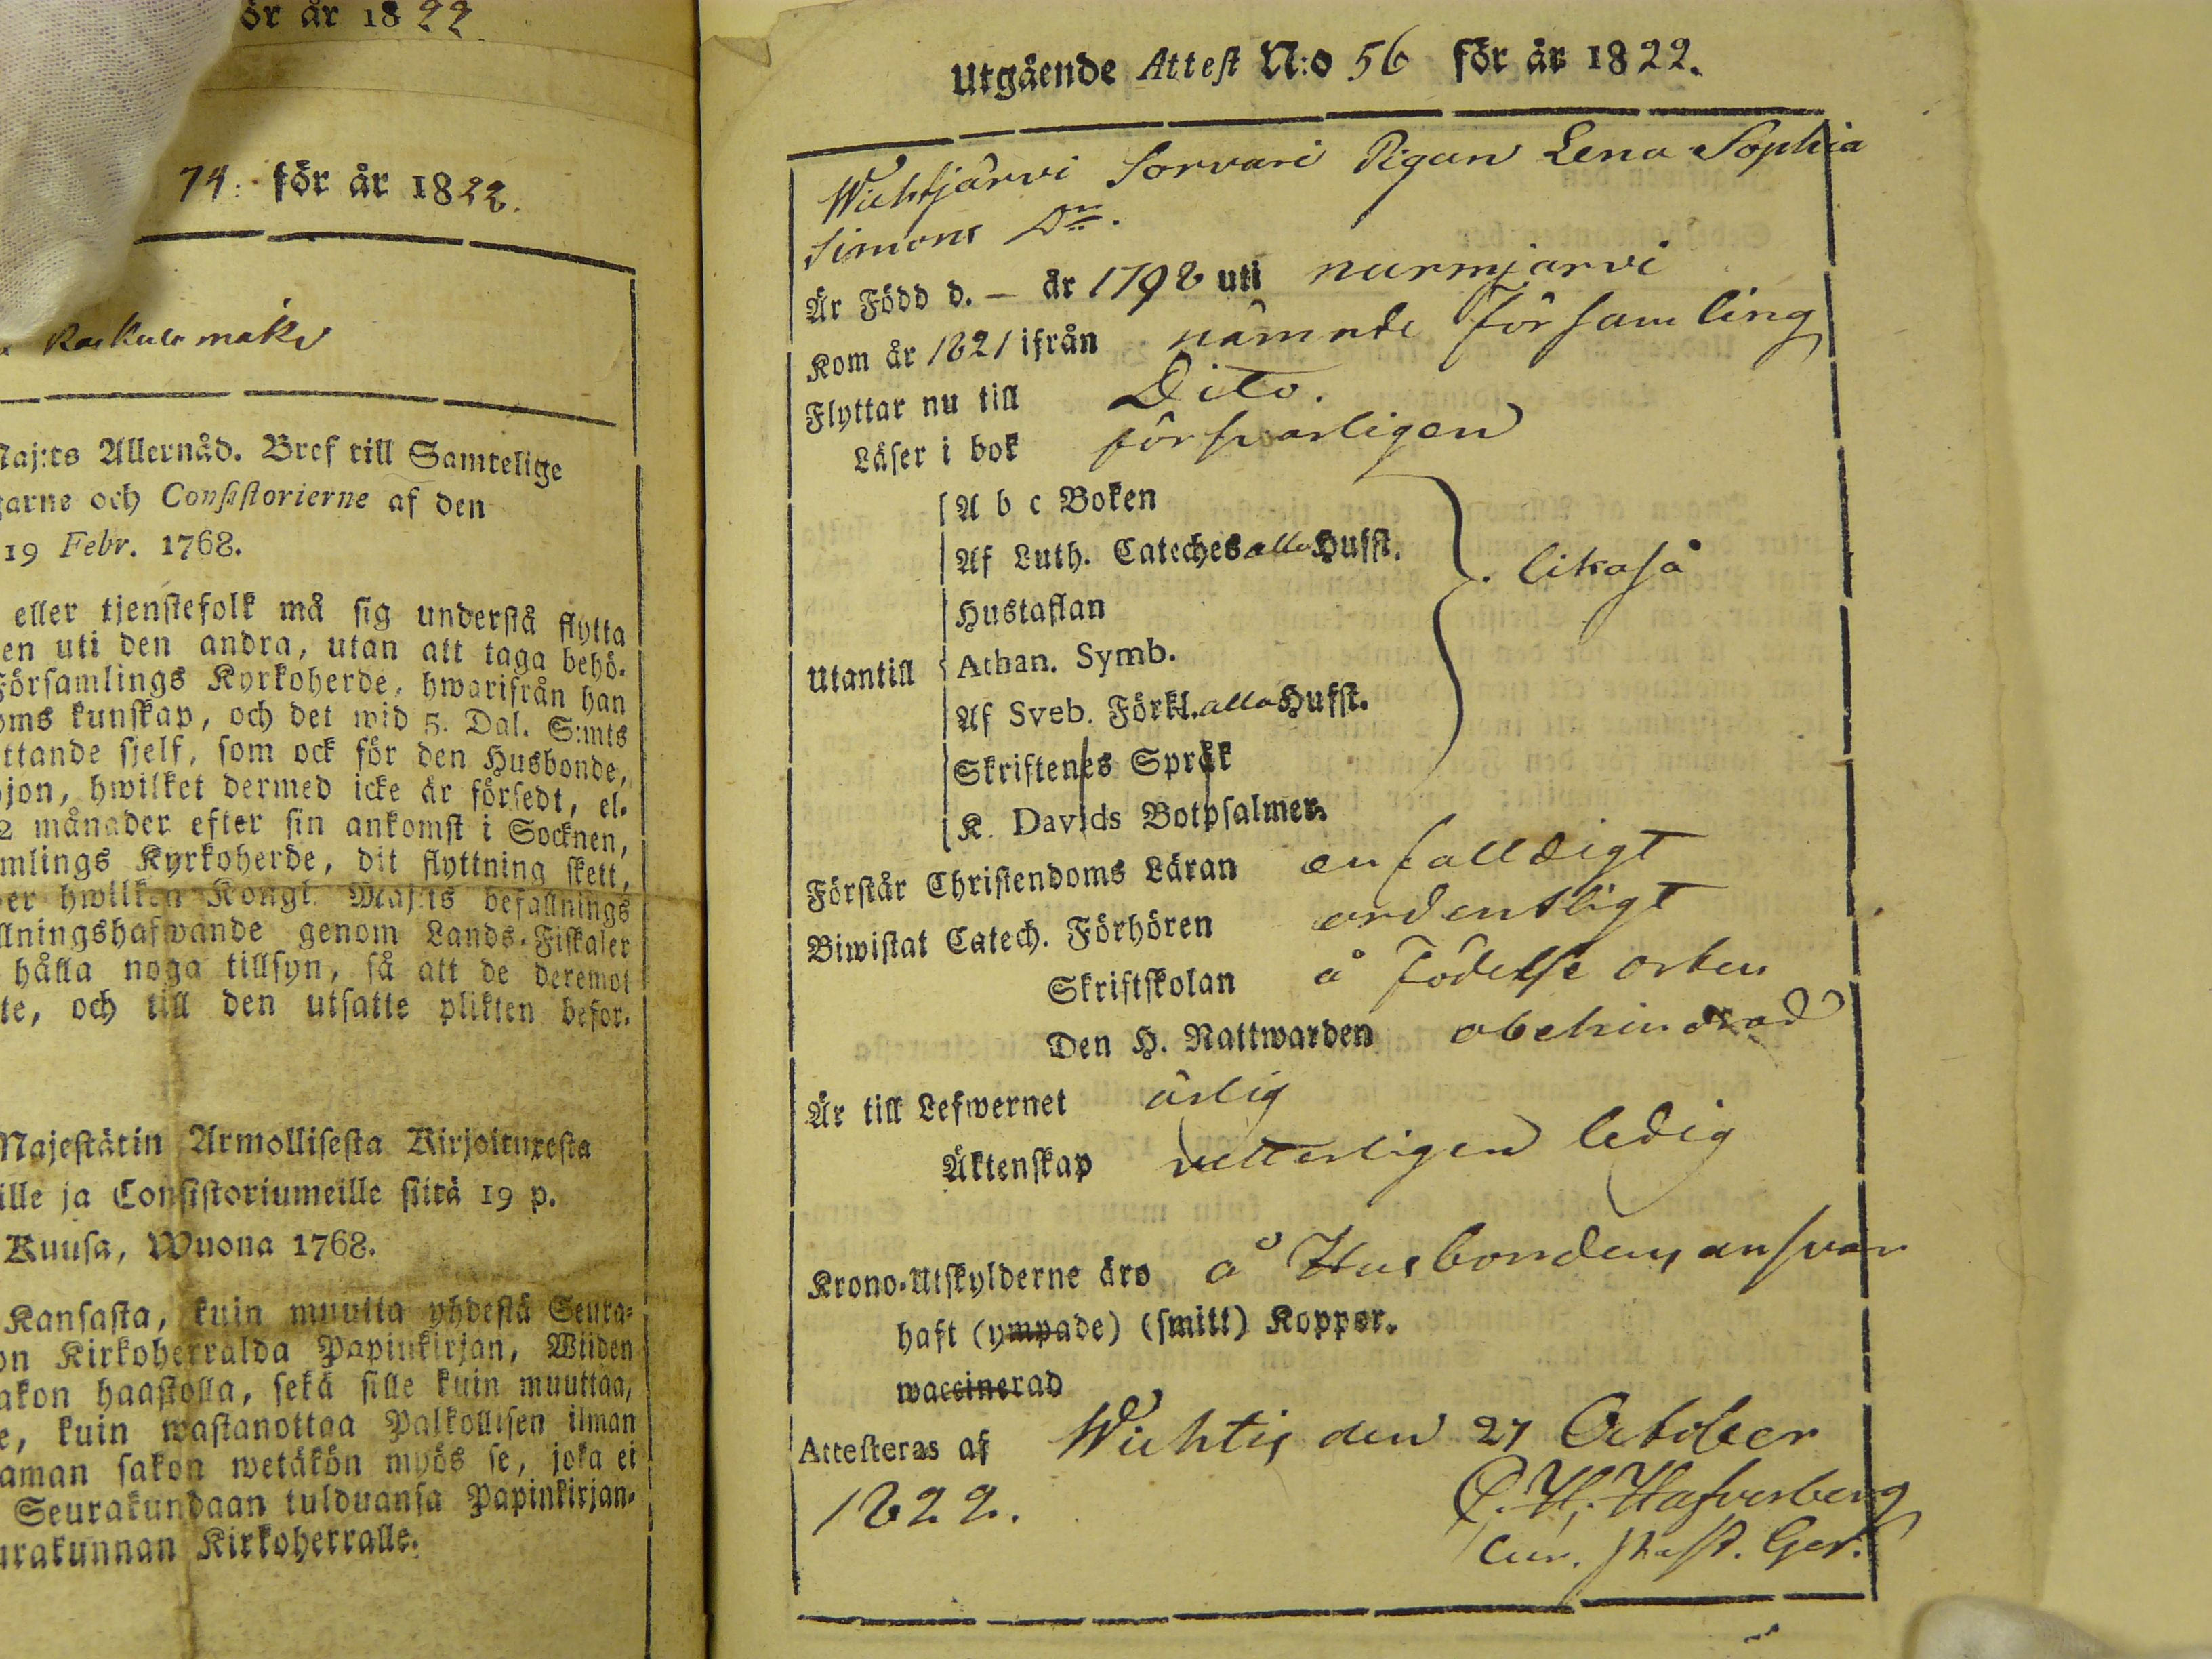 ör år 1822
74. för år 1822.
Maj:ts Allernåd. Bref till Samtelige
garne och Consistorierne af den
19 Febr. 1768.
eller tjenstefolk må sig understå flytta
en uti den andra, utan att taga behö-
Församlings Kyrkoherde, hwarifrån han
oms kunskap, och det wid 5. Dal. S:mts
ttande sjelf, som ock för den Husbonde,
jon, hwilket dermed icke är försedt, el-
2 månader efter sin ankomst i Socknen,
mlings Kyrkoherde, dit flyttning skett,
er hwilken Kongl. Maj:ts befallnings
llningshafwande genom Lands-Fiskaler
hålla noga tillsyn, så att de deremot
te, och till den utsatte plikten befor-
Majestätin Armollisesta Kirjoituxesta
ille ja Consistoriumeille siitä 19 p.
Kuusa, Wuona 1768.
Kansasta, kuin muutta yhdestä Seura-
on Kirkoherralda Papinkirjan, Wiiden
akon haastolla, sekä sille kuin muuttaa,
e, kuin wastanottaa Palkollisen ilman
aman sakon wetäkön myös se, joka ei
Seurakundaan tulduansa Papinkirjan-
urakunnan Kirkoherralle.
Utgående Attest N:o 56 för år 1822.
Wichtjärvi Sorvari Pigan Lena Sophia
Simons Dr.
Är Född d. – år 1798 uti nurmjärvi
Kom år 1821 ifrån nämnde Församling
Flyttar nu till Dito.
Läser i bok försvarligen
A b c Boken
Af Luth. Cateches alla Hufst.
Hustaflan likaså
Utantill Athan. Symb.
Af Sveb. Förkl. alla Hufst.
Skriftenes Språk
K. Davids Botpsalmer.
Förstår Christendoms Läran enfalldigt
Biwistat Catech. Förhören ordentligt
Skriftskolan å Födelse orten
Den H. Nattwarden obehindrad
Är till Lefwernet ärlig
Äktenskap veterligen ledig
Krono-Utskylderne äro å Husbondens answar
haft (ympade) (smitt) Koppor.
waccinerad
Attesteras af Wichtis den 27 October
1822. C. H. Hafverberg